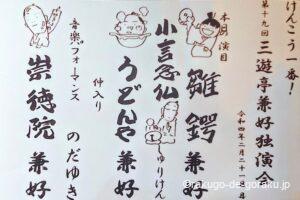 けんこう一番!
第十九回 三遊亭兼好独演会
令和四年二月二十一日
本日演目
雛鍔 兼好
しゅりけん
小言念仏
うどんや 兼好
仲入り
音楽パフォーマンス のだゆき
崇徳院 兼好
©rakugo-de-goraku.jp